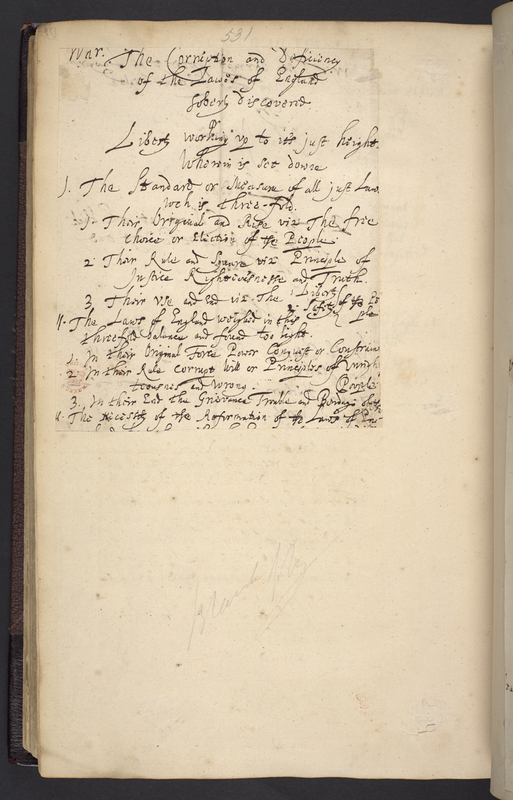 531
War. The Corruption and Deficiency
of the Lawes of England
soberly discovered
Liberty working up to its just height.
Wherein is set downe
1. The Standard, or Measure of all just Laws
wch is three-fold.
1. Their Original and Rise viz The free
choice or Election of the People.
2 Their Rule and Square viz Principle of
Justice Righteousnesse and Truth.
3 Their use and end viz The Liberty
& Safety of the Peo
ple
11. The Laws of England weighed in this
threefold balance and found too light.
1. In their Original Force Power Conquest or Constraint
2. In their Rule corrupt Will or Principles of Unrigh
teousnes and wrong.
3. In their End the Grievance Trouble and Bondage of the
People
The necessity of the Reformation of the Laws of En
blank